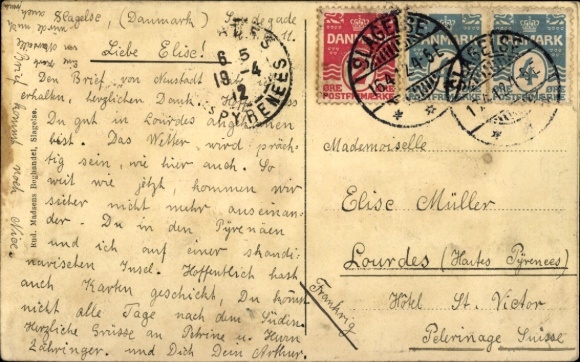 Slagelse, (Danmark) S gegade 11.
Liebe Elise!
Den Brief von Neustadt
erhalten, herzlichen Dank.
Du gut in Lourdes angekommen
bist. Das Wetter, wird präch-
tig sein, wie hier auch. So
weit wie jetzt, kommen wir
sicher nicht mehr auseinan-
der. Du in den Pyrenäen
und ich auf einer skandi-
navischen Insel. Hoffentlich hast
auch Karten geschickt, Du kommst
nicht alle Tage nach dem Süden.
Herzliche Grüsse an Petrine u. Herrn
Zähringer. und Dich Dein Arthur.
Brief kommt noch
Rud. Madsens Boghandel, Slagelse
6 5
18 4
12
PYRENEES
DANMARK
ØRE
POSTFRIMÆRKE
DANMARK
ØRE
POSTFRIMÆRKE
DANMARK
4
ØRE
POSTFRIMÆRKE
SLAGELSE
SLAGELSE
Mademoiselle
Elise Müller
Lourdes (Haute Pyrenees)
Hôtel St. Victor
Pelerinage Suisse